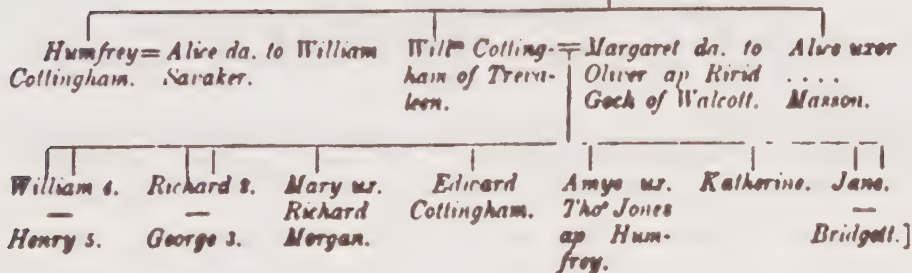 Humfrey = Alice da. to William
Cottingham. Saraker.
Willm Cotting-
ham of Treva-
leen.
Margaret da. to
Oliver ap Ririd
Goch of Walcott.
Alice uxor
....
Masson.
William 4.
—
Henry 5.
Richard 2.
—
George 3.
Mary ux.
Richard
Morgan.
Edward
Cottingham.
Amye ux.
Tho⁸ Jones
ap Hum-
frey.
Katherine.
Jane.
—
Bridgett.]